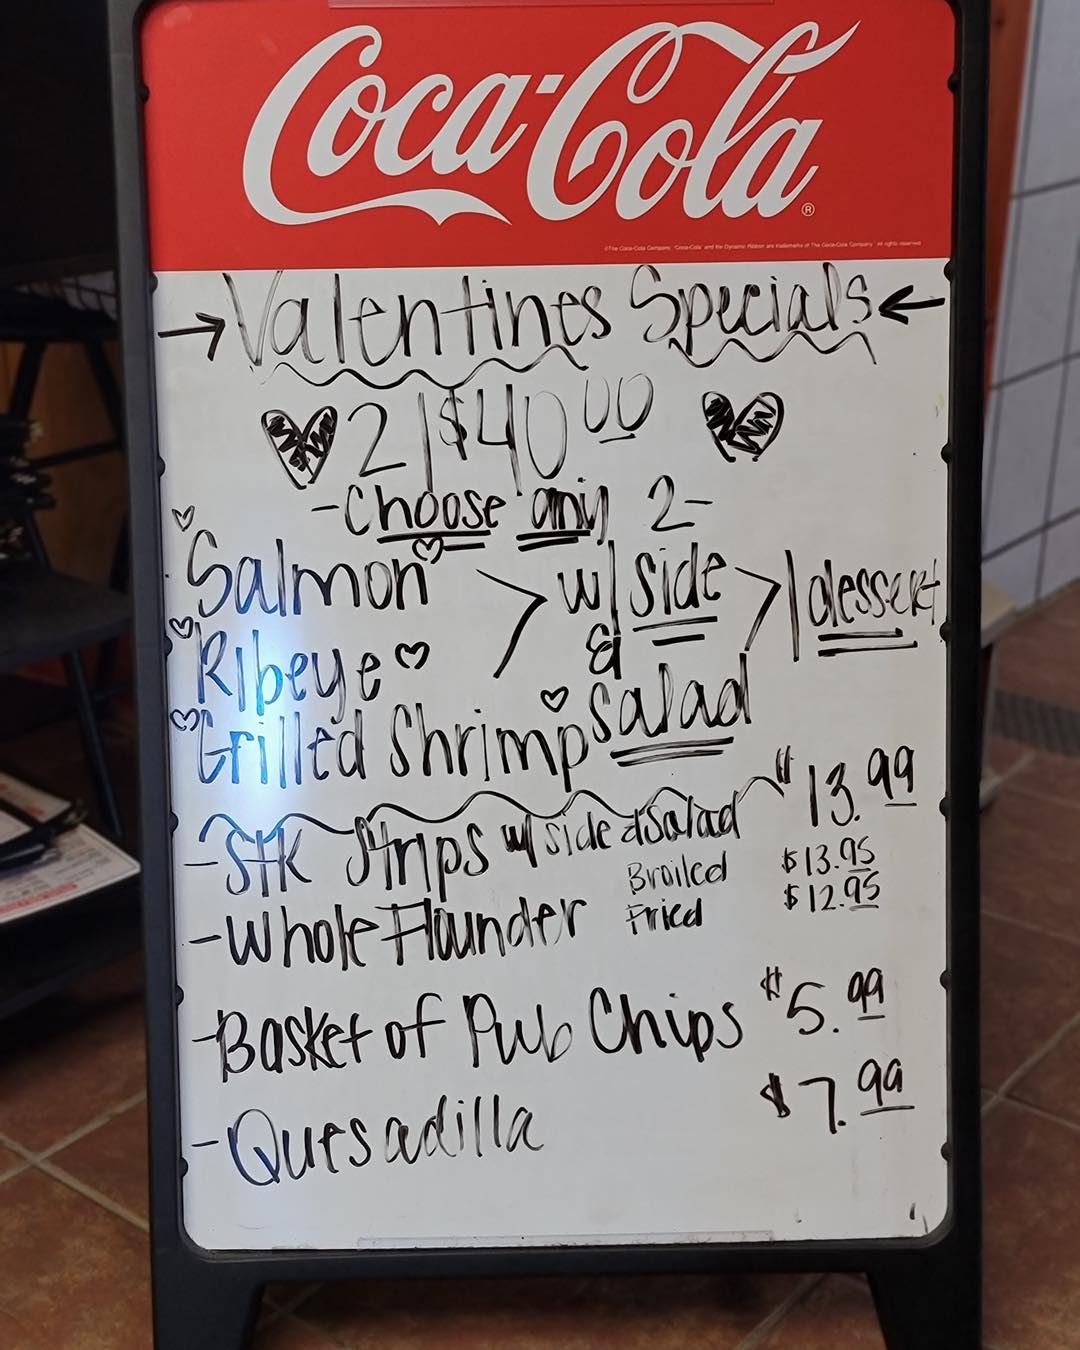 Coca-Cola
®
©The Coca-Cola Company. "Coca-Cola" and the Dynamic Ribbon are trademarks of The Coca-Cola Company. All rights reserved.
→Valentines Specials←
2/$40.00
-Choose any 2-
Salmon
Ribeye
Grilled Shrimp
w/ side
&
salad
1 dessert
-Stk Strips w/ side & Salad $13.99
-Whole Flounder
Broiled $13.95
Fried $12.95
-Basket of Pub Chips $5.99
-Quesadilla $7.99